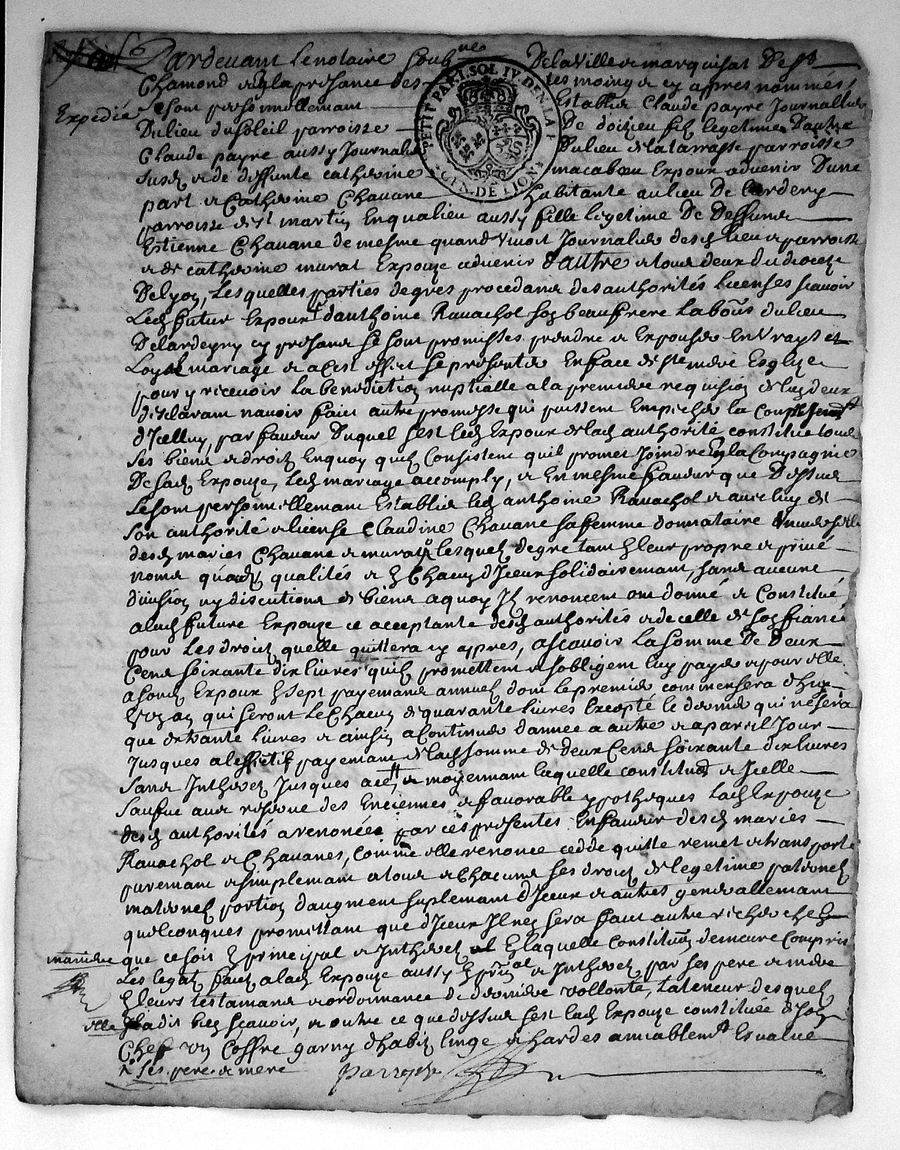 Pardevant le notaire soubne de la ville et marquisat de St
Chamond et en la presance des tesmoings cy appres nommés
Expedié
Se sont personnellemant Establis Claude payre Journallier
PETIT PAP. 1. SOL. IV. DEN. LA F.
GEN. DE LION
Du lieu du soleil parroisse De doizieu fils legetime D'autre
Claude payre aussy Journalier Du lieu de la tarrasse parroisse
susd et de deffunte catherine macabeou Expoux advenir D'une
part et Catherine Chauane habitante au lieu De lardeny
parroisse de St martin En qualieu aussy fille legetime De Deffunt
Estienne Chauane de mesme quand vivoit Journalier desd lieu et parroisse
et de catherine murat Expouze advenir d'autre et tous deux du dioceze
De lyon, Lesquelles parties de gres procedant des authorités licenses scavoir
Led futur Expoux d'anthoine Ravachol son beau frere Labour du lieu
De lardeyny cy presant se sont promisses prendre et Expouser En vrays et
Loyal mariage et a cest effect se presenter En face de ste mere Esglize
pour y recevoir La benediction nuptialle a la premiere requision de lun deux
desclarant navoir faict autre promesse qui puissent Empecher la
d'Icelluy, par faveur Duquel sest led Expoux de lad authorité constitue tous
ses biens et droits En quoy quils Consistent quil promet Joindre En la Compagnie
De sad Expouze, Led mariage accomply, et En mesme faveur que Dessus
se sont personnellemant Establis led anthoine Ravachol et avec luy de
son authorité et license Claudine Chauane sa femme donnataire
desd maries Chauane et murat lesquels de gre tant En leur propre et privé
noms quesd qualités et En Chacun d'Iceux solidairemant, sans aucune
division ny discution de biens a quoy Ils renoncent ont donné et Constitué
a lad future Expouze ce acceptante desd authorités et de celle de son fiancé
pour Les droits quelle quittera cy appres, a scavoir La somme De Deux
Cens soixante dix livres quils promettent et sobligent luy payer et pour elle
a sond Expoux En sept payemans annuels dont le premier commensera d'huy
En un an qui seront Le Chacun de quarante livres Excepté le dernier qui ne sera
que de trante livres et ainsin a Continuer d'annee a autre et a pareil Jour
Jusques a leffectif payemant de lad somme de deux Cens soixante dix livres
sans Intherets Jusques a et moyennant laquelle constitution et Icelle
sauf aux reserve des Enciennes et favorable ypotheques Lad Expouze
desd authorités a renoncé par ces presentes En faveur desd maries
Ravachol et Chauanes, Comme elle renonce cedde quitte remet et transporte
puremant et simplemant a tous et Chacuns ses droits de legetime paternel
maternel portion d'augment suplemant d'Iceux et autres generallemant
quelconques promettant que d'Iceux Il n'en sera faict autre recherche En
maniere
que ce soit En principal et Intherets En laquelle Constitution demeure Compris
Les legats faits a lad Expouze aussy En et Intherets par ses pere et mere
En leurs testamans et ordonnance de derniere vollonté, La teneur desquels
elle
a dit bien scavoir, et outre ce que dessus sest lad Expouze constituée d'son
Chef un Coffre garny d'habits linge et hardes amiablemt Esvalué
ses pere et mere